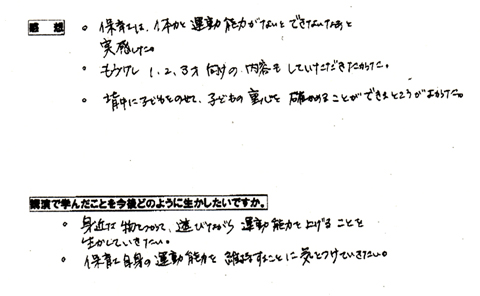 感 想
。保育士は、体力と運動能力がないとできないなあと
実感した。
。もう少し1、2、3才向けの内容もしていただきたかった。
。背中に子どもをのせて、子どもの重心を確かめることができるところがよかった。
講演で学んだことを今後どのように生かしたいですか。
。身近な物をつかって、遊びながら運動能力を上げることを
生かしていきたい。
。保育士自身の運動能力を維持することに気をつけていきたい。